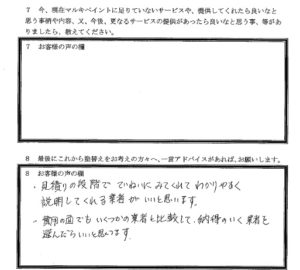 7 今、現在マルキペイントに足りていないサービスや、提供してくれたら良いなと
思う事柄や内容、又、今後、更なるサービスの提供があったら良いなと思う事、等があ
りましたら、教えてください。
7 お客様の声の欄
8 最後にこれから塗替えをお考えの方々へ、一言アドバイスがあれば、お願いします。
8 お客様の声の欄
・見積りの段階で ていねいにみてくれて わかりやすく
説明してくれる業者が いいと思います。
・費用の面でも いくつかの業者と比較して、納得のいく業者を
選んだらいいと思います。